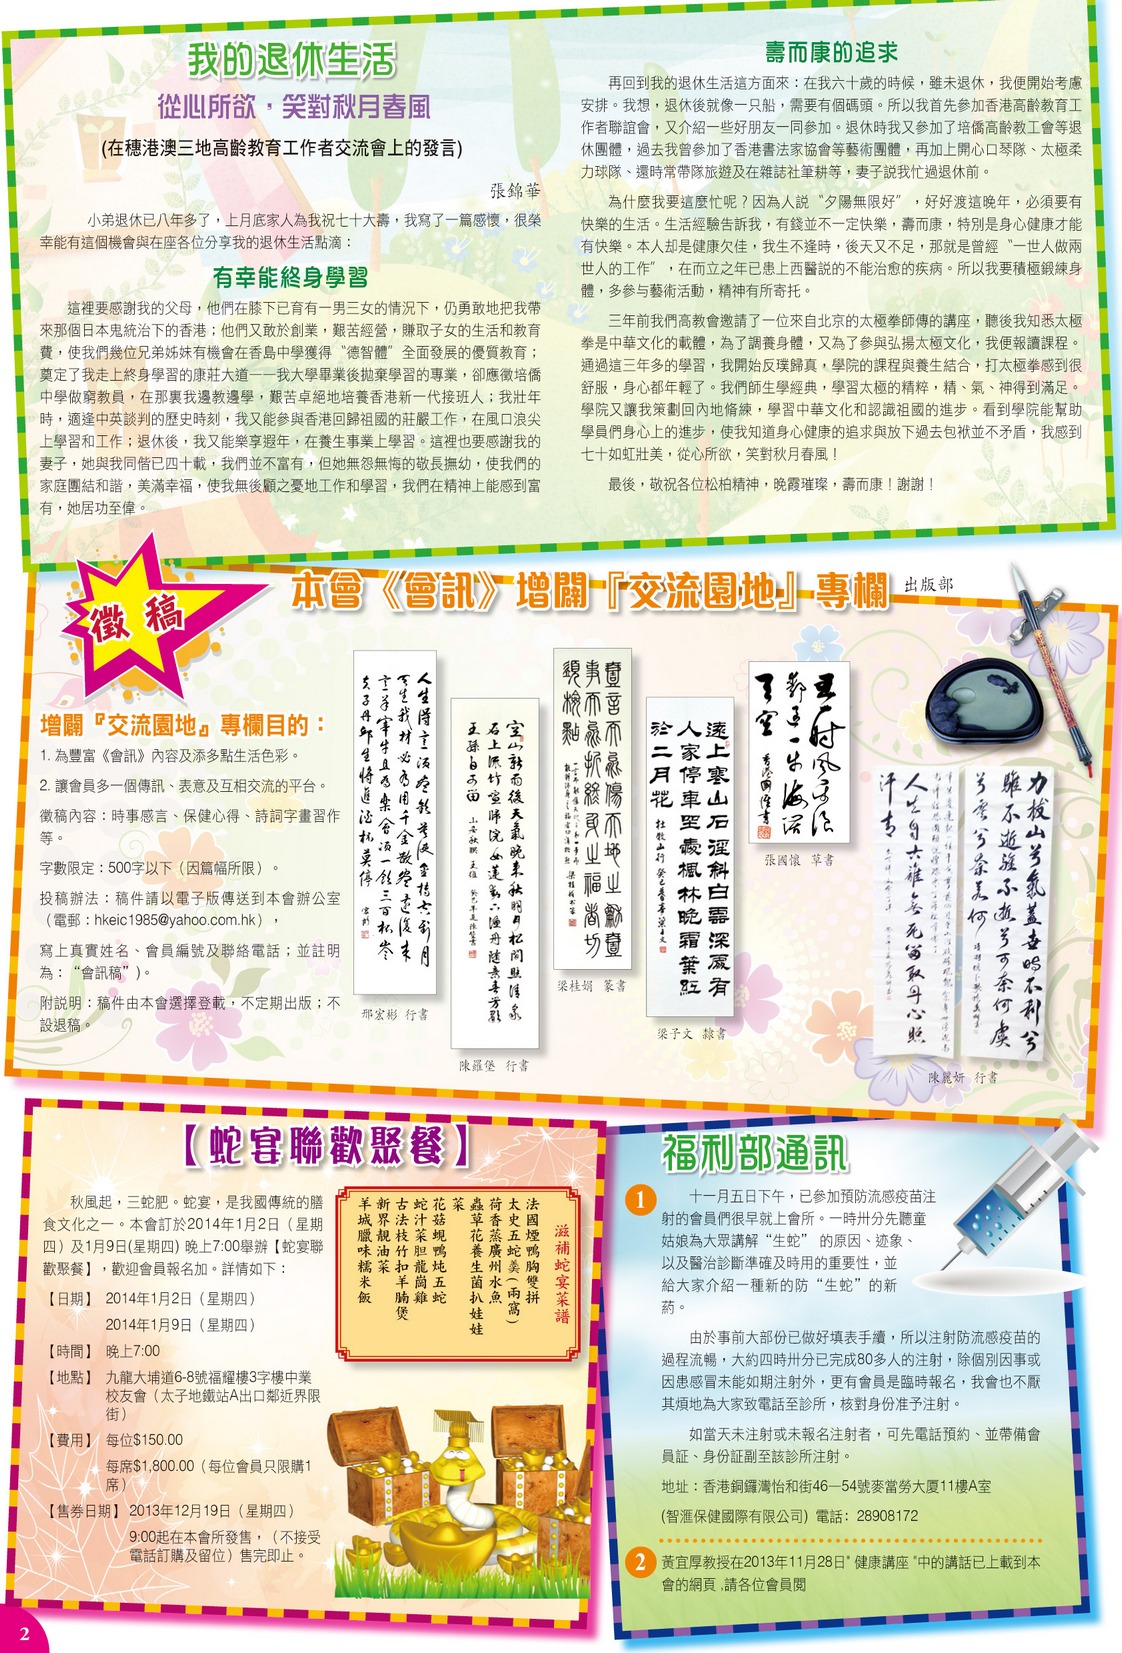 我的退休生活
從心所欲，笑對秋月春風
(在穗港澳三地高齡教育工作者交流會上的發言)
張錦華
小弟退休已八年多了，上月底家人為我祝七十大壽，我寫了一篇感懷，很榮
幸能有這個機會與在座各位分享我的退休生活點滴：
有幸能終身學習
這裡要感謝我的父母，他們在膝下已育有一男三女的情況下，仍勇敢地把我帶
來那個日本鬼統治下的香港；他們又敢於創業，艱苦經營，賺取子女的生活和教育
費，使我們幾位兄弟姊妹有機會在香島中學獲得“德智體”全面發展的優質教育；
奠定了我走上終身學習的康莊大道——我大學畢業後拋棄學習的專業，卻應徵培僑
中學做窮教員，在那裏我邊教邊學，艱苦卓絕地培養香港新一代接班人；我壯年
時，適逢中英談判的歷史時刻，我又能參與香港回歸祖國的莊嚴工作，在風口浪尖
上學習和工作；退休後，我又能樂享遐年，在養生事業上學習。這裡也要感謝我的
妻子，她與我同偕已四十載，我們並不富有，但她無怨無悔的敬長撫幼，使我們的
家庭團結和諧，美滿幸福，使我無後顧之憂地工作和學習，我們在精神上能感到富
有，她居功至偉。
壽而康的追求
再回到我的退休生活這方面來：在我六十歲的時候，雖未退休，我便開始考慮
安排。我想，退休後就像一只船，需要有個碼頭。所以我首先參加香港高齡教育工
作者聯誼會，又介紹一些好朋友一同參加。退休時我又參加了培僑高齡教工會等退
休團體，過去我曾參加了香港書法家協會等藝術團體，再加上開心口琴隊、太極柔
力球隊、還時常帶隊旅遊及在雜誌社筆耕等，妻子説我忙過退休前。
為什麼我要這麼忙呢？因為人説“夕陽無限好”，好好渡這晚年，必須要有
快樂的生活。生活經驗告訴我，有錢並不一定快樂，壽而康，特別是身心健康才能
有快樂。本人却是健康欠佳，我生不逢時，後天又不足，那就是曾經“一世人做兩
世人的工作”，在而立之年已患上西醫説的不能治愈的疾病。所以我要積極鍛練身
體，多參与藝術活動，精神有所寄托。
三年前我們高教會邀請了一位來自北京的太極拳師傅的講座，聽後我知悉太極
拳是中華文化的載體，為了調養身體，又為了參與弘揚太極文化，我便報讀課程。
通過這三年多的學習，我開始反璞歸真，學院的課程與養生結合，打太極拳感到很
舒服，身心都年輕了。我們師生學經典，學習太極的精粹，精、氣、神得到滿足。
學院又讓我策劃回內地脩練，學習中華文化和認識祖國的進步。看到學院能幫助
學員們身心上的進步，使我知道身心健康的追求與放下過去包袱並不矛盾，我感到
七十如虹壯美，從心所欲，笑對秋月春風！
最後，敬祝各位松柏精神，晚霞璀璨，壽而康！謝謝！
徵稿
本會《會訊》增闢『交流園地』專欄
出版部
增闢『交流園地』專欄目的：
1. 為豐富《會訊》內容及添多點生活色彩。
2. 讓會員多一個傳訊、表意及互相交流的平台。
徵稿內容：時事感言、保健心得、詩詞字畫習作
等。
字數限定：500字以下（因篇幅所限）。
投稿辦法：稿件請以電子版傳送到本會辦公室
（電郵：hkeic1985@yahoo.com.hk），
寫上真實姓名、會員編號及聯絡電話；並註明
為：“會訊稿”)。
附説明：稿件由本會選擇登載，不定期出版；不
設退稿。
邢宏彬 行書
空山新雨後天氣晚來秋明月松間照清泉
石上流竹喧歸浣女蓮動下漁舟隨意春芳歇
王孫自可留
陳羅堡 行書
梁桂娟 篆書
遠上寒山石徑斜白雲深處有
人家停車坐愛楓林晚霜葉紅
於二月花
梁子文 隸書
張國懷 草書
力拔山兮氣蓋世時不利兮
騅不逝騅不逝兮可奈何虞
兮虞兮奈若何
人生自古誰無死留取丹心照
汗青
陳麗妍 行書
【蛇宴聯歡聚餐】
秋風起，三蛇肥。蛇宴，是我國傳統的膳
食文化之一。本會訂於2014年1月2日（星期
四）及1月9日(星期四) 晚上7:00舉辦【蛇宴聯
歡聚餐】，歡迎會員報名加。詳情如下：
【日期】 2014年1月2日（星期四）
2014年1月9日（星期四）
【時間】 晚上7:00
【地點】 九龍大埔道6-8號福耀樓3字樓中業
校友會（太子地鐵站A出口鄰近界限
街）
【費用】 每位$150.00
每席$1,800.00（每位會員只限購1
席）
【售券日期】 2013年12月19日（星期四）
9:00起在本會所發售，（不接受
電話訂購及留位）售完即止。
滋補蛇宴菜譜
法國煙鴨胸雙拼
太史五蛇羹(兩窩)
荷香蒸廣州水魚
蟲草花養生菌扒娃娃
菜
花菇蜆鴨炖五蛇
蛇汁菜胆龍崗雞
古法枝竹扣羊腩煲
新界靚油菜
羊城臘味糯米飯
福利部通訊
1
十一月五日下午，已參加預防流感疫苗注
射的會員們很早就上會所。一時卅分先聽童
姑娘為大眾講解“生蛇” 的原因、迹象、
以及醫治診斷準確及時用的重要性，並
給大家介紹一種新的防“生蛇”的新
葯。
由於事前大部份已做好填表手續，所以注射防流感疫苗的
過程流暢，大約四時卅分已完成80多人的注射，除個別因事或
因患感冒未能如期注射外，更有會員是臨時報名，我會也不厭
其煩地為大家致電話至診所，核對身份准予注射。
如當天未注射或未報名注射者，可先電話預約、並帶備會
員証、身份証副至該診所注射。
地址：香港銅鑼灣怡和街46—54號麥當勞大厦11樓A室
(智滙保健國際有限公司) 電話：28908172
2
黃宜厚教授在2013年11月28日" 健康講座 "中的講話已上載到本
會的網頁 ,請各位會員閲
2